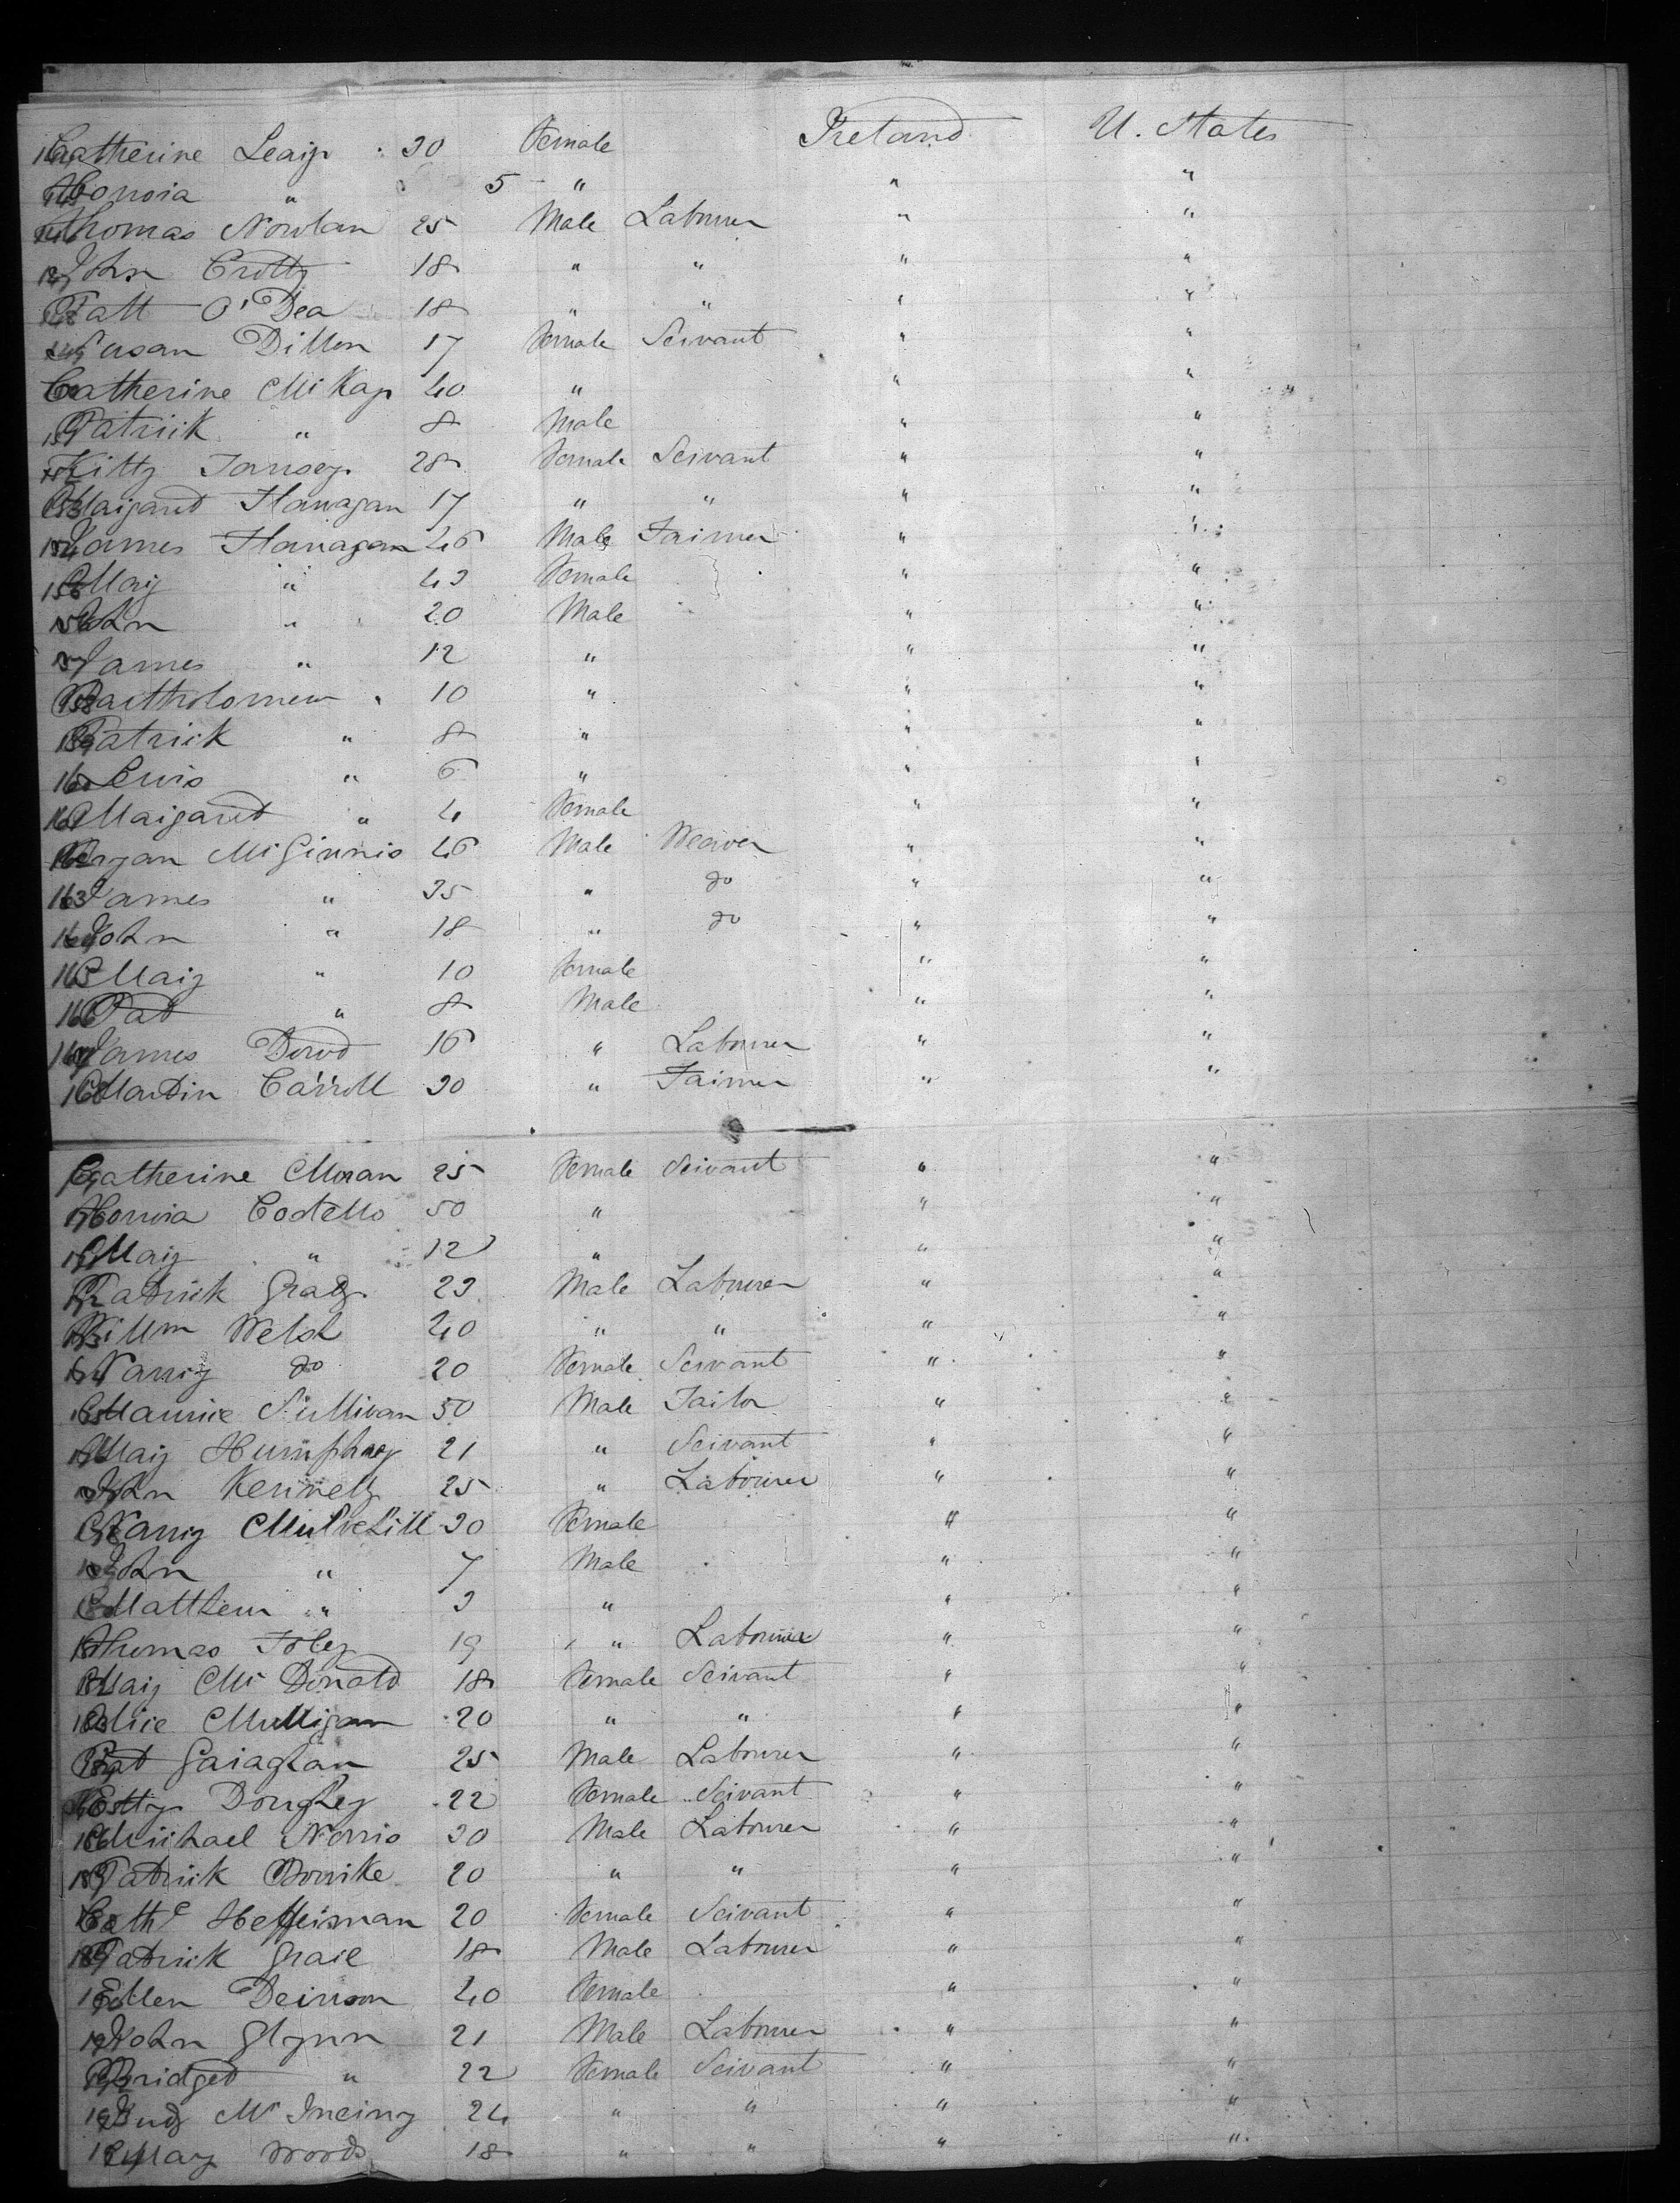 144 Catherine Leary 30 Female Ireland U. States
145 Honora " 5 " " "
146 Thomas Nowlan 25 Male Labourer " "
147 John Crotty 18 " " " "
148 Patt O'Dea 18 " " " "
149 Susan Dillon 17 Female Servant " "
150 Catherine McKay 40 " " "
151 Patrick " 8 Male " "
152 Kitty Tansey 28 Female Servant " "
153 Margaret Flanagan 17 " " " "
154 James Flanagan 46 Male Farmer " "
155 Mary " 43 Female " "
156 John " 20 Male " "
157 James " 12 " " "
158 Bartholomew " 10 " " "
159 Patrick " 8 " " "
160 Lewis " 6 " " "
161 Margaret " 4 Female " "
162 Bryan McGinnis 46 Male Weaver " "
163 James " 35 " do " "
164 John " 18 " do " "
165 Mary " 10 Female " "
166 Pat " 8 Male " "
167 James Dowd 16 " Labourer " "
168 Martin Carroll 30 " Farmer " "
169 Catherine Moran 25 Female Servant " "
170 Honora Costello 50 " " "
171 Mary " 12 " " "
172 Patrick Grady 23 Male Labourer " "
173 Willm Welsh 40 " " " "
174 Nancy do 20 Female Servant " "
175 Maurice Sullivan 50 Male Tailor " "
176 Mary Humphrey 21 " Servant " "
177 John Kennely 25 " Labourer " "
178 Nancy Mulvehill 30 Female " "
179 John " 7 Male " "
180 Matthew " 3 " " "
181 Thomas Foley 19 " Labourer " "
182 Mary McDonald 18 Female Servant " "
183 Alice Mulligan 20 " " " "
184 Pat Garaghan 25 Male Labourer " "
185 Etty Doughey 22 Female Servant " "
186 Michael Norris 30 Male Labourer " "
187 Patrick Bourke 20 " " " "
188 Cathe Heffernan 20 Female Servant " "
189 Patrick Grace 18 Male Labourer " "
190 Ellen Deirson 40 Female " "
191 John Glynn 21 Male Labourer " "
192 Bridget " 22 Female Servant " "
193 Judy Mc 24 " " " "
194 Mary Woods 18 " " " "